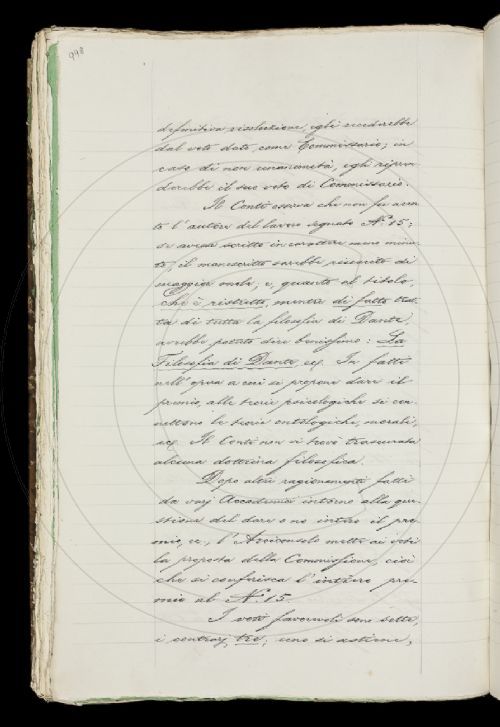 998
definitiva risoluzione, egli recederebbe
dal voto dato come Commissario; in
caso di non unanimità, egli ripren
derebbe il suo voto di Commissario.
Il Conti osserva che non fu accu
to l'autore del lavoro segnato N.º 15;
se avesse scritto in carattere meno minu
to, il manoscritto sarebbe riuscito di
maggior mole, e, quanto al titolo,
che è ristretto, mentre di fatto trat
ta di tutta la filosofia di Dante,
avrebbe potuto dire benissimo: La
Filosofia di Dante, ecc. In fatti
nell'opera a cui si propone dare il
premio, alle teorie psicologiche si con
nettono le teorie ontologiche, morali,
ecc. Il Conti non vi trova trascurata
alcuna dottrina filosofica.
Dopo altri ragionamenti fatti
da varj Accademici intorno alla que
stione del dare o no intero il pre
mio, ec., l'Arciconsolo mette ai voti
la proposta della Commissione, cioè
che si conferisca l'intero pre
mio al N.º 15.
I voti favorevoli sono sette,
i contrarj tre; uno si astiene,